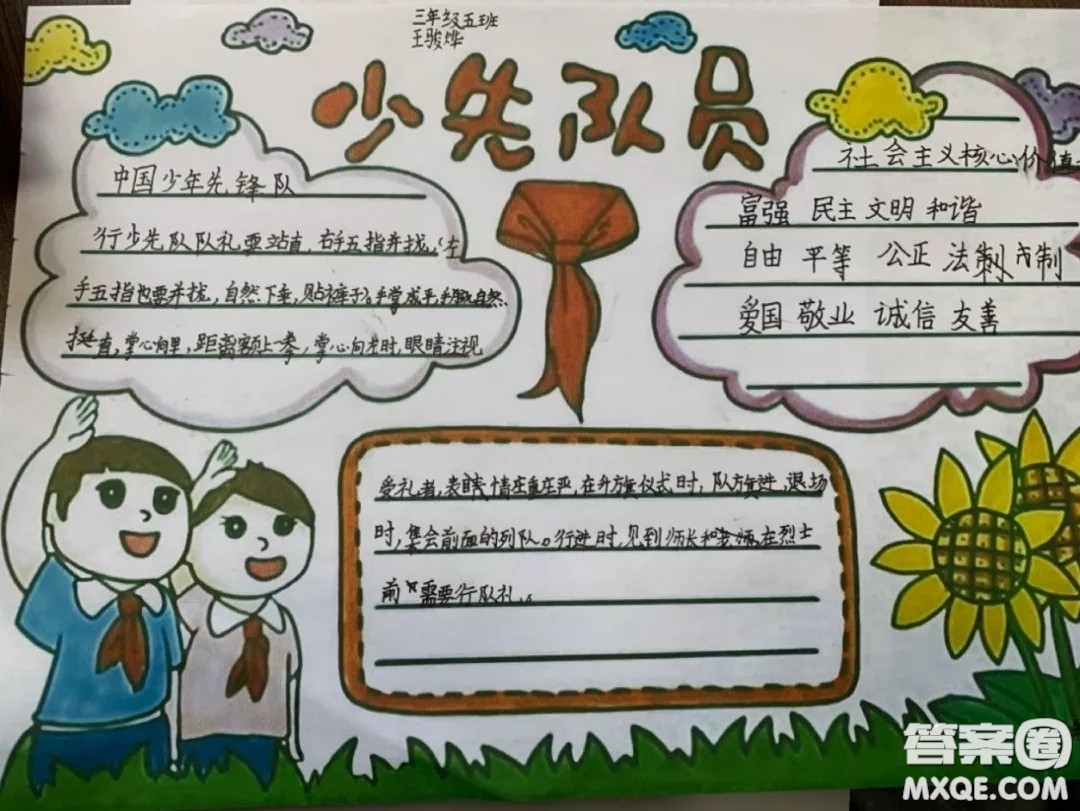 三年级五班
王骏烨
少先队员
中国少年先锋队
行少先队队礼要站直,右手五指并拢,(左
手五指也要并拢,自然下垂,贴裤子)。手掌成平,手腕自然
挺直,掌心向里,距离额上一拳,掌心向光时,眼睛注视
社会主义核心价值
富强 民主 文明 和谐
自由 平等 公正 法制
爱国 敬业 诚信 友善
受礼者,表情庄重庄严,在升旗仪式时,队旗进,退场
时,集会前面的列队。行进时,见到师长和 在烈士
前 需要行队礼。
答案圈
MXQE.COM